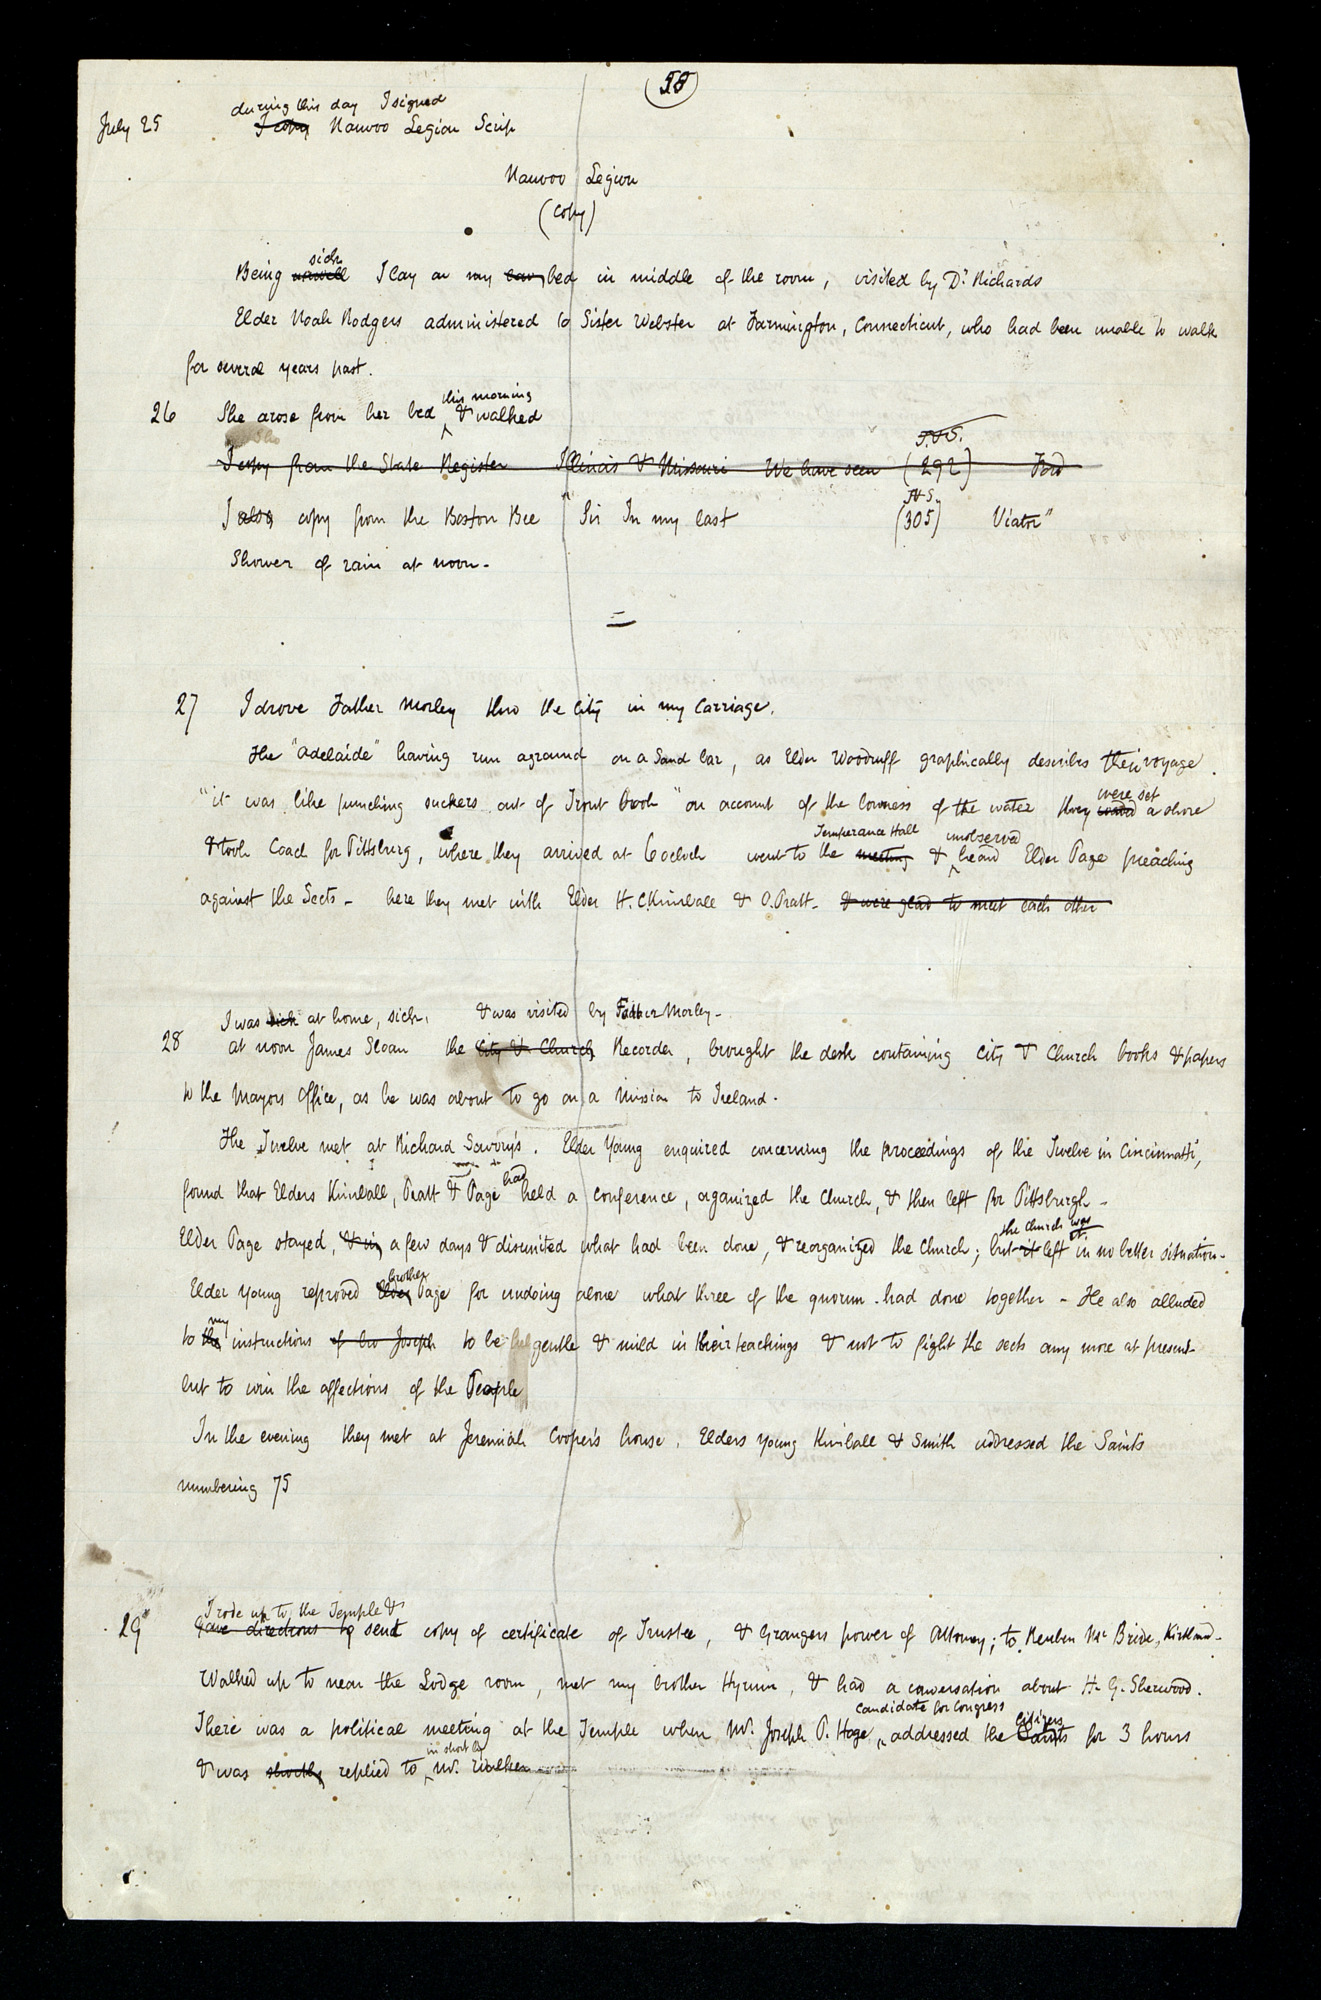 58
during this day I signed
July 25 I copy Nauvoo Legion Scrip
Nauvoo Legion
(Copy)
sick
Being unwell I lay on my bed in middle of the room, visited by Dr. Richards
Elder Noah Rodgers administered to Sister Webster at Farmington, Connecticut, who had been unable to walk
for several years past.
this morning
26 She arose from her bed & walked
T.&S.
I copy from the State Register Illinois & Missouri We have seen (292) Ford
T&S.
I also copy from the Boston Bee "Sir In my last (305) Viator"
Shower of rain at noon-
27 I drove Father Morley thro the City in my Carriage.
The "Adelaide" having run aground on a Sand bar, as Elder Woodruff graphically describes their voyage
were set
"it was like punching suckers out of Trout brook" on account of the lowness of the water they a shore
Temperance Hall unobserved
& took Coach for Pittsburg, where they arrived at 6 oclock went to the meeting & heard Elder Page preaching
against the Sects - here they met with Elder H. C Kimball & O. Pratt- & were glad to meet each other
I was sick at home, sick, & was visited by Father Morley-
28 at noon James Sloan the City & Church Recorder, brought the desk containing City & Church books & papers
to the Mayors Office, as he was about to go on a Mission to Ireland.
The Twelve met at Richard Savory's. Elder Young enquired concerning the proceedings of the Twelve in Cincinnatti,
had
found that Elders Kimball, Pratt & Page held a conference, organized the Church, & then left for Pittsburgh-
the Church was
Elder Page stayed, a few days & disunited what had been done, & reorganized the Church; but it left in no better situation-
brother
Elder Young reproved Elder Page for undoing alone what three of the quorum had done together - He also alluded
my
to the instructions of bro Joseph to be gentle & mild in their teachings & not to fight the sects any more at present
but to win the affections of the People
In the evening they met at Jeremiah Cooper's house. Elders Young Kimball & Smith addressed the Saints
numbering 75
I rode up to the Temple &
29 Gave directions to send copy of certificate of Trustee, & Grangers power of Attorney; to Reuben Mc Bride, Kirtland-
Walked up to near the Lodge room, met my brother Hyrum, & had a conversation about H. G. Sherwood.
candidate for Congress citizens
There was a political meeting at the Temple when Mr. Joseph P. Hoge, addressed the Saints for 3 hours
in short by
& was shortly replied to Mr. Walker